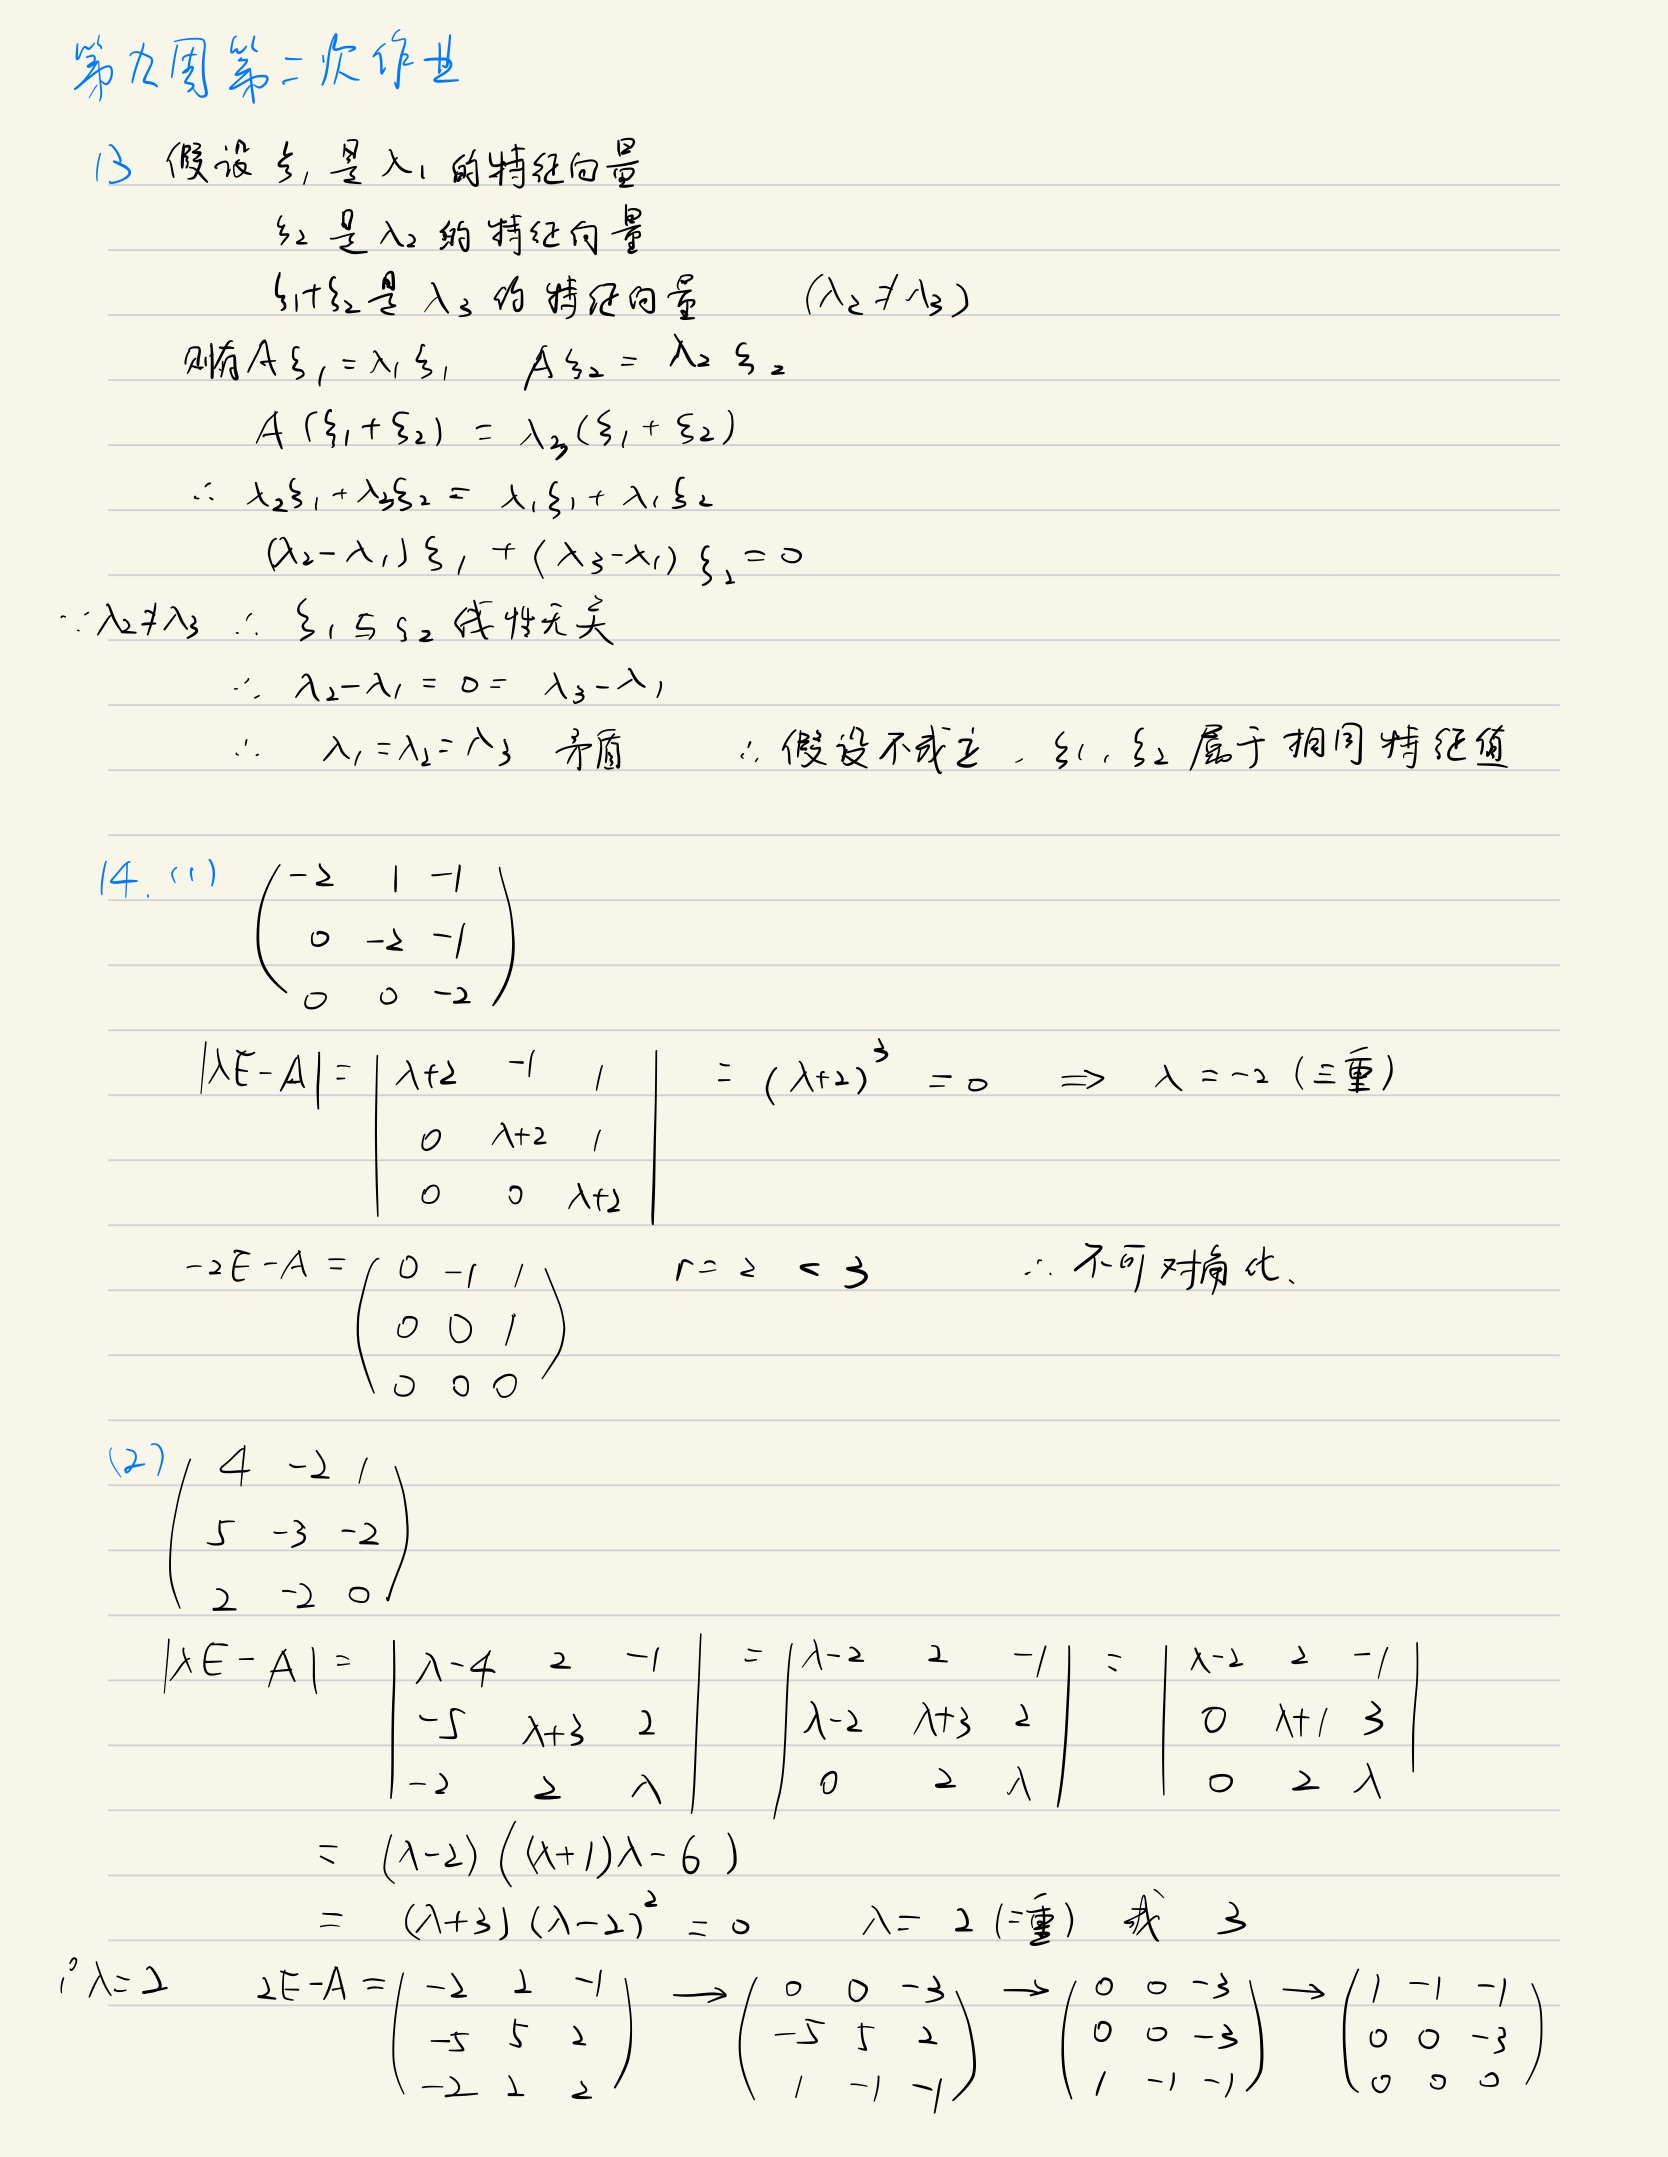 第九周第二次作业
13 假设 ξ₁ 是 λ₁ 的特征向量
ξ₂ 是 λ₂ 的特征向量
ξ₁+ξ₂ 是 λ₃ 的特征向量 (λ₂≠λ₃)
则有 Aξ₁=λ₁ξ₁ Aξ₂=λ₂ξ₂
A(ξ₁+ξ₂) = λ₃(ξ₁+ξ₂)
∴ λ₂ξ₁+λ₃ξ₂ = λ₁ξ₁+λ₁ξ₂
(λ₂-λ₁)ξ₁ + (λ₃-λ₁)ξ₂=0
∵λ₂≠λ₃ ∴ ξ₁与ξ₂线性无关
∴ λ₂-λ₁=0=λ₃-λ₁
∴ λ₁=λ₂=λ₃ 矛盾 ∴假设不成立. ξ₁,ξ₂属于相同特征值
14.(1) (-2 1 -1
0 -2 -1
0 0 -2)
|λE-A| = |λ+2 -1 1| = (λ+2)³ =0 ⇒ λ=-2(三重)
0 λ+2 1
0 0 λ+2
-2E-A = (0 -1 1 r=2 <3 ∴不可对角化、
0 0 1
0 0 0)
(2) (4 -2 1
5 -3 -2
2 -2 0)
|λE-A| = |λ-4 2 -1| = |λ-2 2 -1| = |λ-2 2 -1|
-5 λ+3 2 λ-2 λ+3 2 0 λ+1 3
-2 2 λ 0 2 λ 0 2 λ
= (λ-2)((λ+1)λ-6)
= (λ+3)(λ-2)² =0 λ=2(二重) 或 3
i°λ=2 2E-A=(-2 2 -1 → (0 0 -3 → (0 0 -3 → (1 -1 -1
-5 5 2 -5 5 2 0 0 -3 0 0 -3
-2 2 2) 1 -1 -1) 1 -1 -1) 0 0 0)